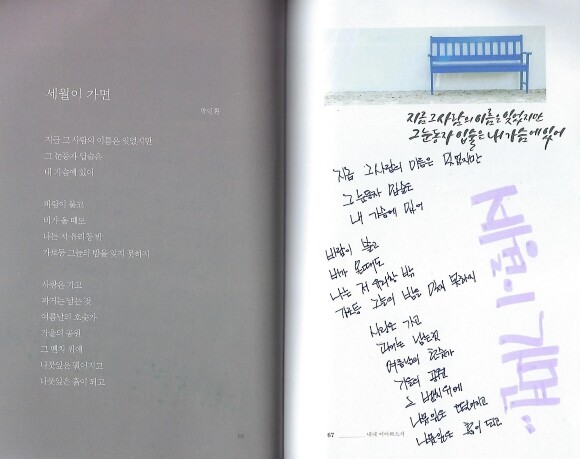 세월이 가면
박인환
지금 그 사람의 이름은 잊었지만
그 눈동자 입술은
내 가슴에 있어
바람이 불고
비가 올 때도
나는 저 유리창 밖
가로등 그늘의 밤을 잊지 못하지
사랑은 가고
과거는 남는 것
여름날의 호숫가
가을의 공원
그 벤치 위에
나뭇잎은 떨어지고
나뭇잎은 흙이 되고
66
지금 그 사람의 이름은 잊었지만
그 눈동자 입술은 내 가슴에 있어
지금 그 사람의 이름은 잊었지만
그 눈동자 입술은
내 가슴에 있어
바람이 불고
비가 올때도
나는 저 유리창 밖
가로등 그늘의 밤을 잊지 못하지
사랑은 가고
과거는 남는것
여름날의 호숫가
가을의 공원
그 벤치위에
나뭇잎은 떨어지고
나뭇잎은 흙이 되고
세월이 가면
67